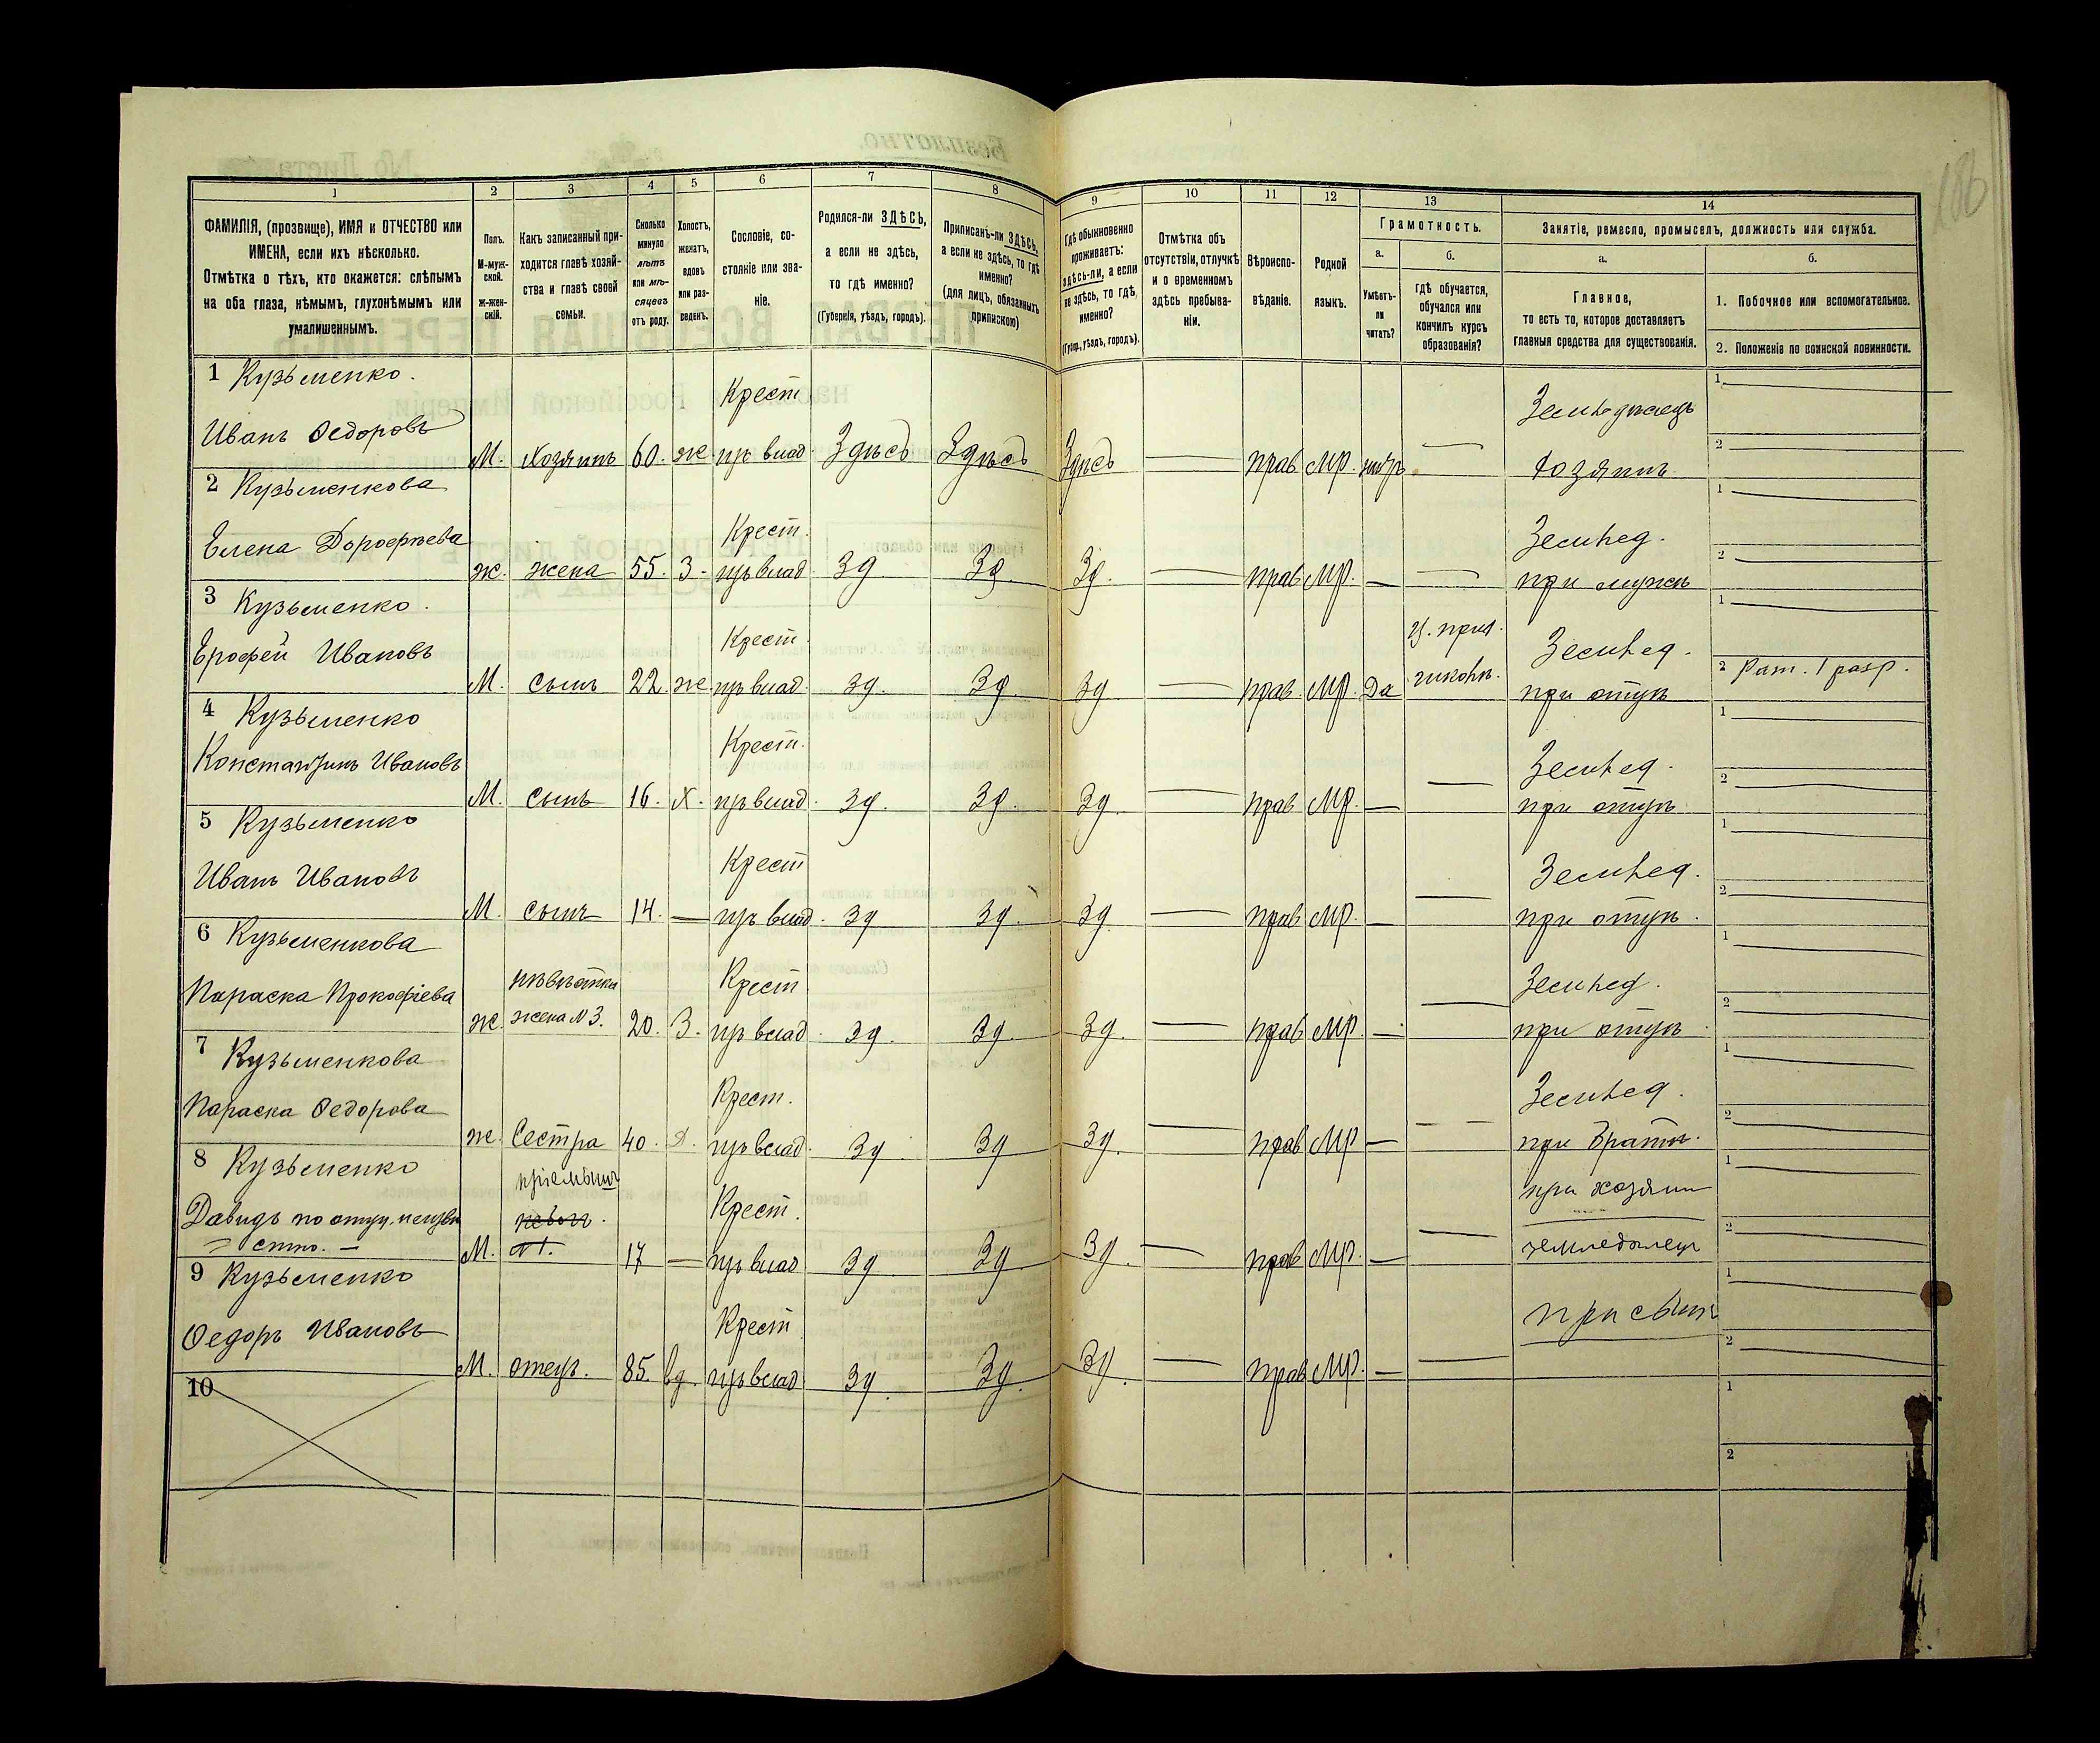 186
1 2 3 4 5 6 7 8 9 10 11 12 13 14
ФАМИЛІЯ, (прозвище), ИМЯ и ОТЧЕСТВО или
ИМЕНА, если ихъ нѣсколько.
Отмѣтка о тѣхъ, кто окажется: слѣпымъ
на оба глаза, нѣмымъ, глухонѣмымъ или
умалишеннымъ.
Полъ.
М-муж-
ской.
ж-жен-
скій.
Какъ записанный при-
ходится главѣ хозяй-
ства и главѣ своей
семьи.
Сколько
минуло
лѣтъ
или мѣ-
сяцевъ
отъ роду.
Холостъ,
женатъ,
вдовъ
или раз-
веденъ.
Сословіе, со-
стояніе или зва-
ніе.
Родился-ли ЗДѢСЬ,
а если не здѣсь,
то гдѣ именно?
(Губернія, уѣздъ, городъ).
Приписанъ-ли ЗДѢСЬ,
а если не здѣсь, то гдѣ
именно?
(для лицъ, обязанныхъ
припискою)
Гдѣ обыкновенно
проживаетъ:
здѣсь-ли, а если
не здѣсь, то гдѣ,
именно?
(Губер., уѣздъ, городъ).
Отмѣтка объ
отсутствіи, отлучкѣ
и о временномъ
здѣсь пребыва-
ніи.
Вѣроиспо-
вѣданіе.
Родной
языкъ.
Грамотность.
а.
Умѣетъ-
ли
читать?
б.
гдѣ обучается,
обучался или
кончилъ курсъ
образованія?
Занятіе, ремесло, промыселъ, должность или служба.
а.
Главное,
то есть то, которое доставляетъ
главныя средства для существованія.
б.
1. Побочное или вспомогательное.
2. Положеніе по воинской повинности.
1 Кузьменко. Крест 1
Иванъ Ѳедоровъ М. Хозяинъ 60. ж пр влад Здѣсь Здѣсь Здѣсь — прав Мр. — Хозяинъ 2
2 Кузьменкова Крест. Землед. 1
Елена Дорофѣева ж. жена 55. З. пр влад Зд Зд. Зд. — прав Мр. — — при мужѣ 2
3 Кузьменко. Крест. Землед. 1
Ерофей Ивановъ М. сынъ 22. ж пр влад. Зд. Зд. Зд — прав. Мр. Да при отцѣ 2 Рат. 1 разр.
4 Кузьменко Крест. Землед. 1
Константинъ Ивановъ М. сынъ 16. Х. пр влад. Зд. Зд. Зд. — прав. Мр. — — при отцѣ 2
5 Кузьменко Крест Землед. 1
Иванъ Ивановъ М. сынъ 14. — пр влад. Зд Зд. Зд. — прав Мр. — — при отцѣ. 2
6 Кузьменкова невѣстка Крест Землед. 1
Параска Прокофіева ж. жена №3. 20. З. пр влад. Зд. Зд. Зд. — прав Мр. — — при отцѣ 2
7 Кузьменкова Крест. Землед. 1
Параска Ѳедорова ж. Сестра 40. Д. пр влад. Зд. Зд Зд. — прав Мр — — — при братѣ. 2
8 Кузьменко пріемышъ Крест. при хозяин 1
Давидъ по отцу неизвѣ
стно. — М. №1. 17 — пр влад Зд Зд Зд. — прав Мр. — — земледѣлецъ 2
9 Кузьменко Крест при сынѣ 1
Ѳедоръ Ивановъ М. отецъ. 85. вд. пр влад Зд. Зд. Зд. — прав Мр. — — 2
10 1
2